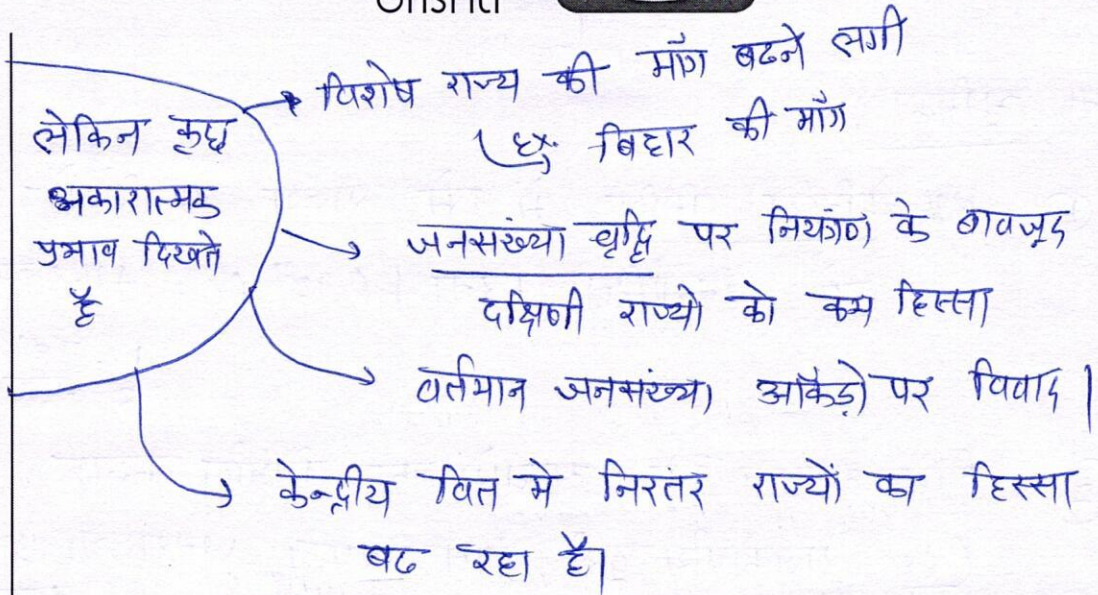 लेकिन कुछ
नकारात्मक
प्रभाव दिखते
है
विशेष राज्य की माँग बढने लगी
बिहार की माँग
जनसंख्या वृद्धि पर नियंत्रण के बावजूद
दक्षिणी राज्यो को कम हिस्सा
वर्तमान जनसंख्या आँकड़ो पर विवाद।
केन्द्रीय वित मे निरंतर राज्यों का हिस्सा
बढ रहा है।